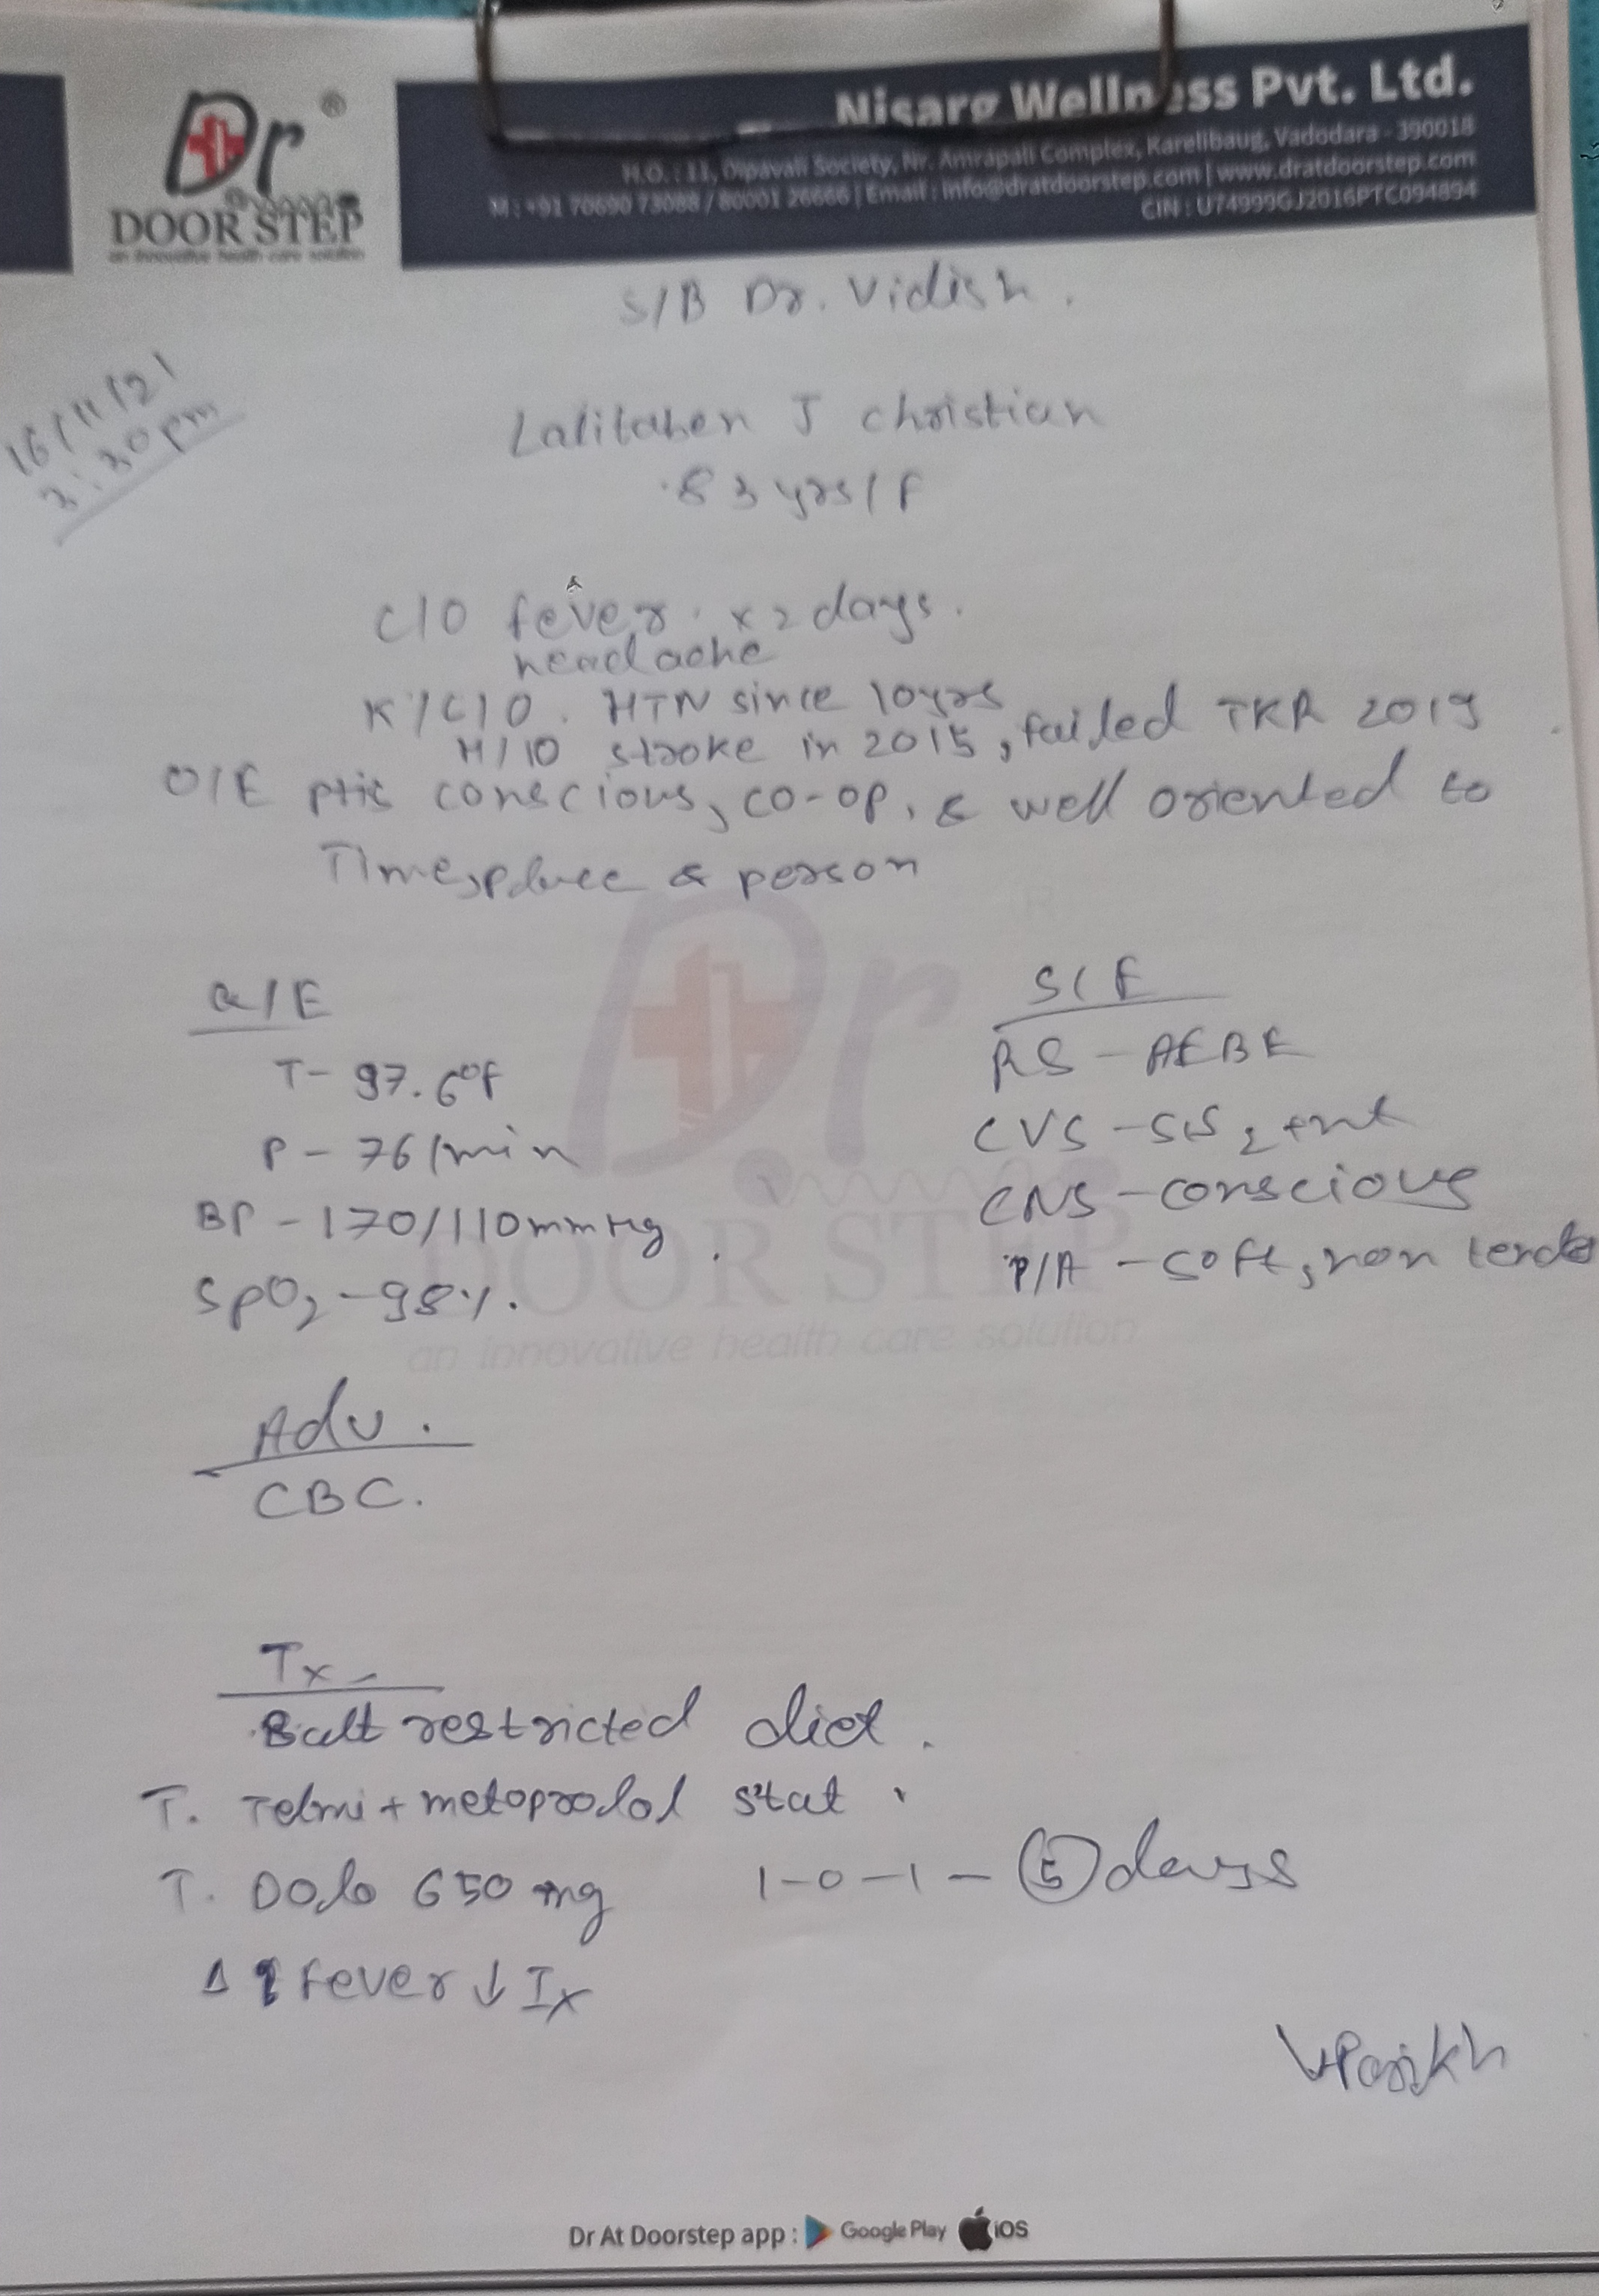 Dr ®
DOOR STEP
an innovative health care solution
Nisarg Wellness Pvt. Ltd.
H.O. : 11, Dipavali Society, Nr. Amrapali Complex, Karelibaug, Vadodara - 390018
M : +91 70690 73088 / 80001 26666 | Email : info@dratdoorstep.com | www.dratdoorstep.com
CIN : U74999GJ2016PTC094894
S/B Dr. Vidish.
16/11/21
3:30pm
Lalitaben J christian
83 yrs/F
C/O fever x 2 days.
headache
K/C/O. HTN since 10yrs
H/O stroke in 2015, failed TKR 2019
O/E conscious, co-op, & well oriented to
Time, place & person
G/E
T- 97.6°F
P - 76/min
BP - 170/110mmHg
SpO2 - 98%.
S/E
RS - AEBE
CVS - S1S2 +nt
CNS - conscious
P/A - soft, non tender
Dr
DOOR STEP
an innovative health care solution
Adv.
CBC.
Tx -
Salt restricted diet.
T. Telmi + metoprolol stat.
T. Dolo 650 mg 1-0-1 - 5 days
fever ↓ Ix
VParikh
Dr At Doorstep app : Google Play iOS